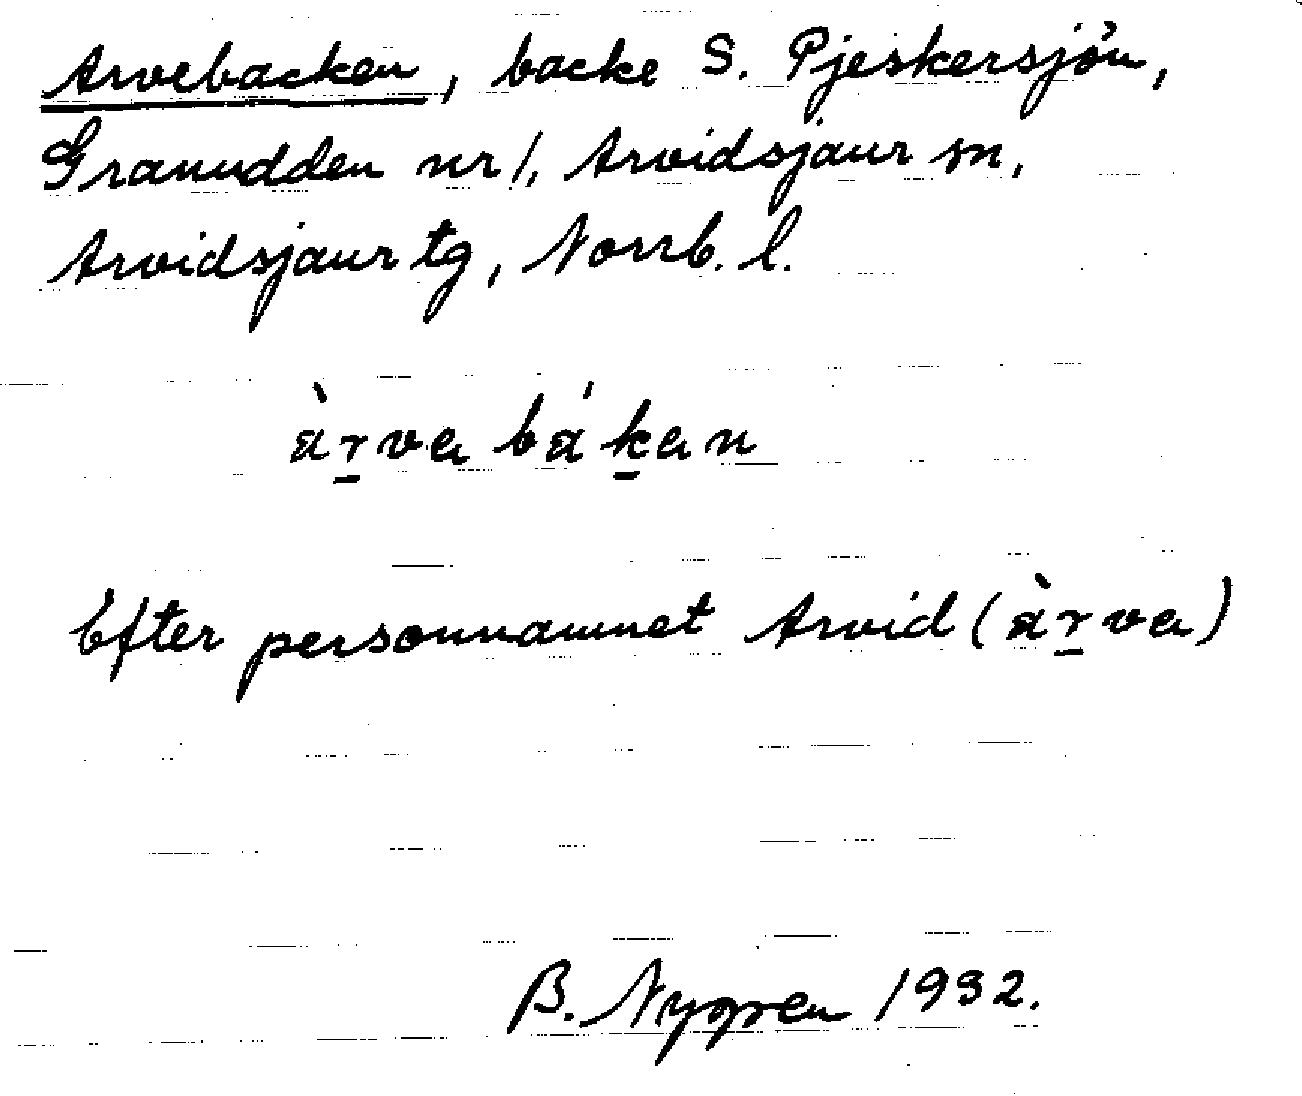 Arvebacken, backe S. Pjeskersjön,
Granudden nr 1, Arvidsjaur sn,
Arvidsjaur tg, Norrb. l.
àr̲va bák̲an
Efter personnamnet Arvid (àr̲va)
B. Nygren 1932.